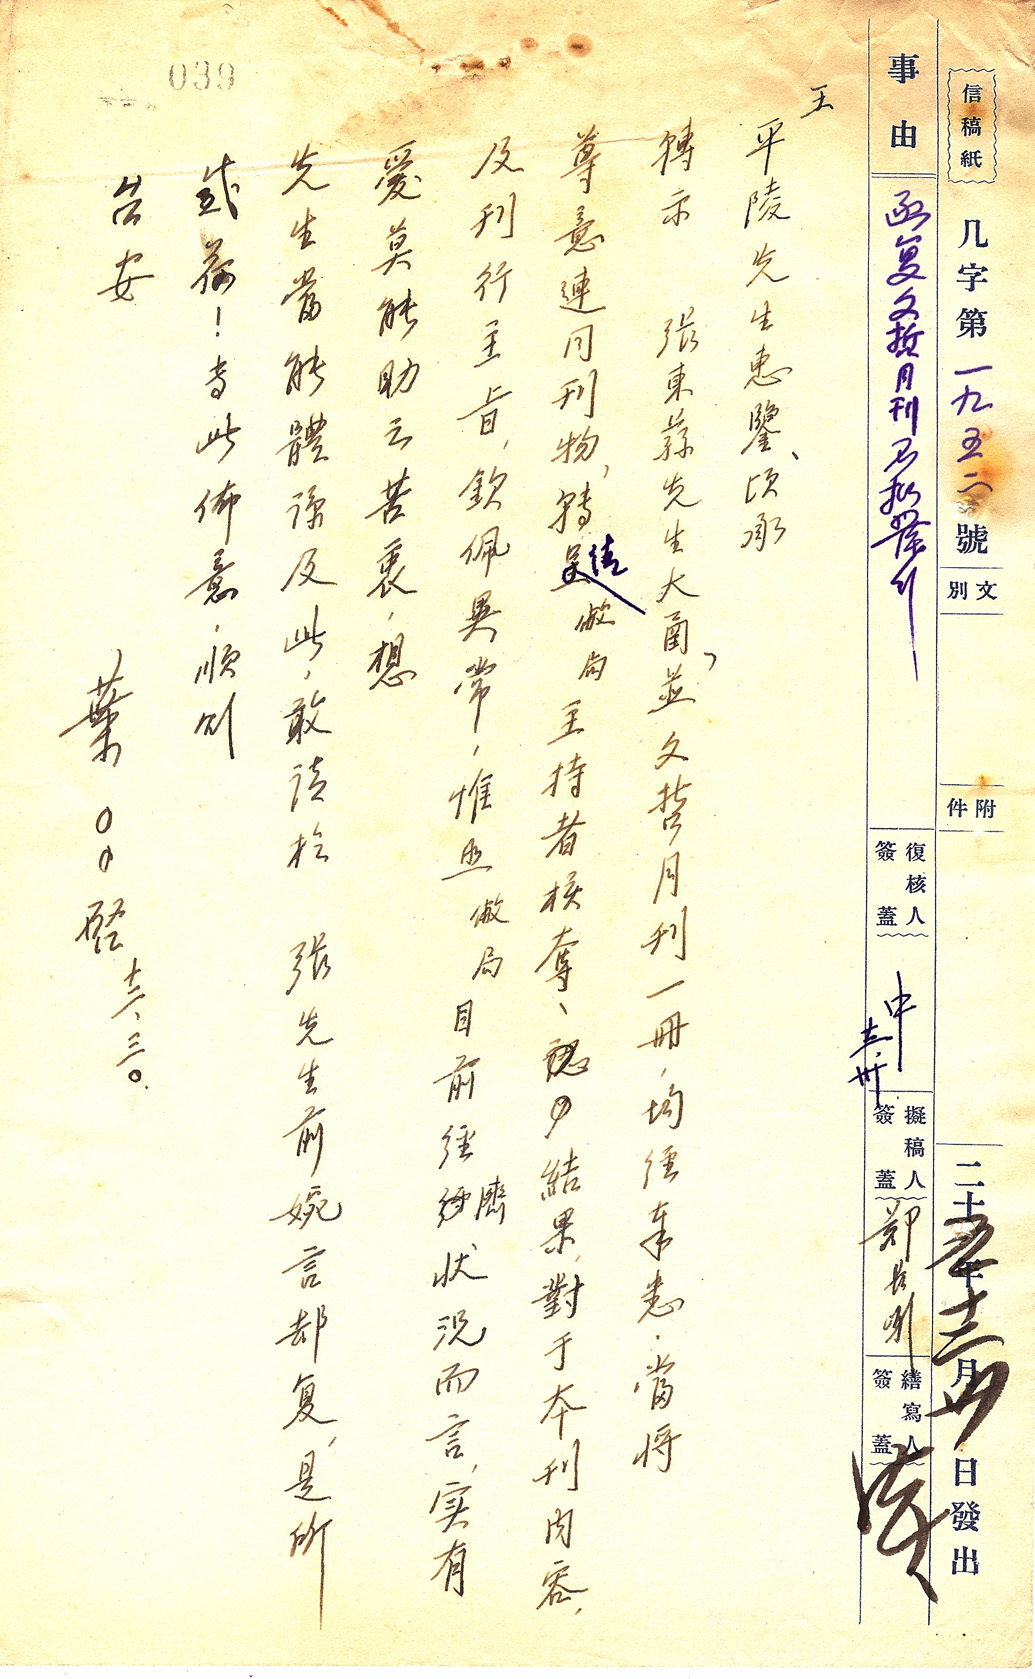 信稿紙
几字第一九五二號
文別
附件
二十五年十二月卅日發出
事由
函复文哲月刊不擬發行
復核人簽蓋
中
擬稿人簽蓋
鄭
繕寫人簽蓋
王
平陵先生惠鑒、頃承
轉示 張東蓀先生大函，並文哲月刊一冊，均經奉悉。當將
尊意連同刊物，轉請敝局主持者核奪、認 結果，對于本刊內容，
及刊行主旨，欽佩異常，惟照敝局目前經濟狀況而言，实有
愛莫能助之苦衷，想
先生當能體諒及此，敢請於 張先生前婉言却复，是所
感荷！專此佈意，順頌
台安
葉〇〇啓 十二、三〇.
039